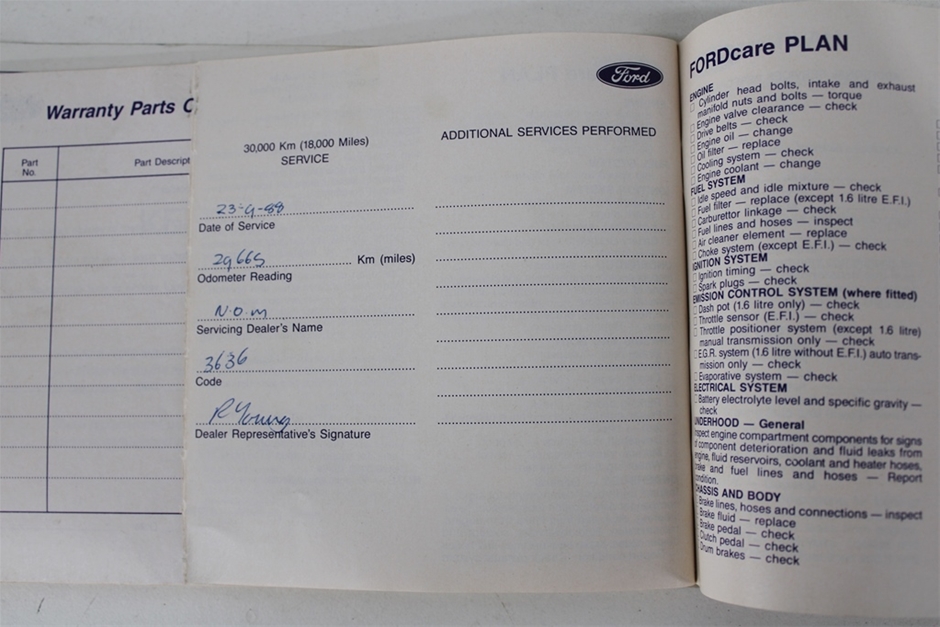 Warranty Parts
Part
No.
Part Descript
Ford
30,000 Km (18,000 Miles)
SERVICE
ADDITIONAL SERVICES PERFORMED
23-9-88
Date of Service
29665 Km (miles)
Odometer Reading
N.O.M
Servicing Dealer's Name
3636
Code
R Young
Dealer Representative's Signature
FORDcare PLAN
ENGINE
Cylinder head bolts, intake and exhaust
manifold nuts and bolts — torque
Engine valve clearance — check
Drive belts — check
Engine oil — change
Oil filter — replace
Cooling system — check
Engine coolant — change
FUEL SYSTEM
Idle speed and idle mixture — check
Fuel filter — replace (except 1.6 litre E.F.I.)
Carburettor linkage — check
Fuel lines and hoses — inspect
Air cleaner element — replace
Choke system (except E.F.I.) — check
IGNITION SYSTEM
Ignition timing — check
Spark plugs — check
EMISSION CONTROL SYSTEM (where fitted)
Dash pot (1.6 litre only) — check
Throttle sensor (E.F.I.) — check
Throttle positioner system (except 1.6 litre)
manual transmission only — check
E.G.R. system (1.6 litre without E.F.I.) auto trans-
mission only — check
Evaporative system — check
ELECTRICAL SYSTEM
Battery electrolyte level and specific gravity —
check
UNDERHOOD — General
nspect engine compartment components for signs
of component deterioration and fluid leaks from
engine, fluid reservoirs, coolant and heater hoses,
rake and fuel lines and hoses — Report
ondition.
CHASSIS AND BODY
Brake lines, hoses and connections — inspect
Brake fluid — replace
Brake pedal — check
Clutch pedal — check
Drum brakes — check